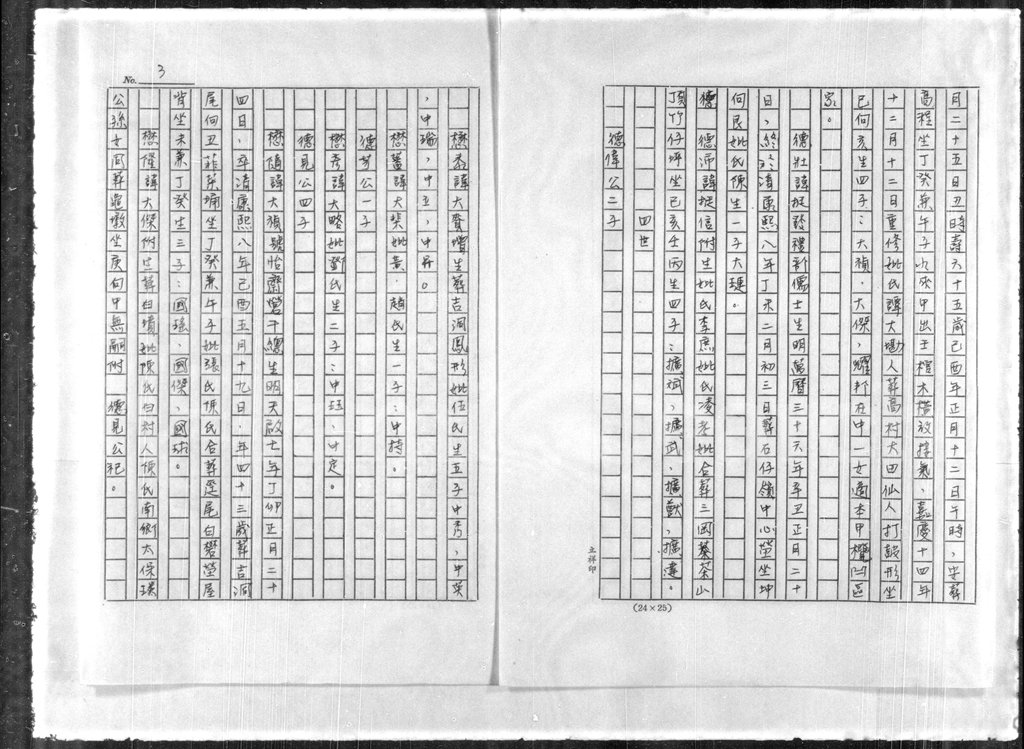 月二十五日丑時壽六十五歲己酉年正月十二日午時，安葬
高程坐丁癸兼午子 出土 木 放 氣，嘉慶十四年
十二月十二日重修妣氏譚大 人葬高村大田仙人打鼓形坐
巳向亥生四子：大禎，大傑，耀邦在中一女適本甲欖凹區
家。
德壯諱挺發禮部儒士生明萬曆三十六年辛丑正月二十
日，終於清康熙八年丁未二月初三日葬石仔嶺中心塋坐坤
向艮妣氏陳生一子大璉。
德沛諱挺信附生妣氏李庶妣氏凌光妣合葬三岡 茶山
頂竹仔坪坐己亥壬丙生四子：擴斌，擴武，擴猷，擴遠。
四世
德偉公二子
No. 3
懋 諱大賚增生葬吉洞鳳形妣伍氏生五子中秀，中英
，中瑜，中立，中昇。
懋 諱大 妣黃，趙氏生一子：中持。
德芳公一子
懋秀諱大略妣鄧氏生二子：中 ，中定。
德見公四子
懋 諱大禎號怡齋營千總生明天啟七年丁卯正月二十
四日，卒清康熙八年己酉五月十九日，年四十三歲葬吉洞
尾向丑菲菜埇坐丁癸兼午子妣張氏陳氏合葬 尾白礬塋屋
背坐未兼丁癸生三子：國瑤，國傑，國 。
懋 諱大傑附生葬白墳妣陳氏白村人陳氏南鄉大保 
公孫女同葬龜墩坐庚向甲無嗣附 德見公祀。
立祥印
(24×25)